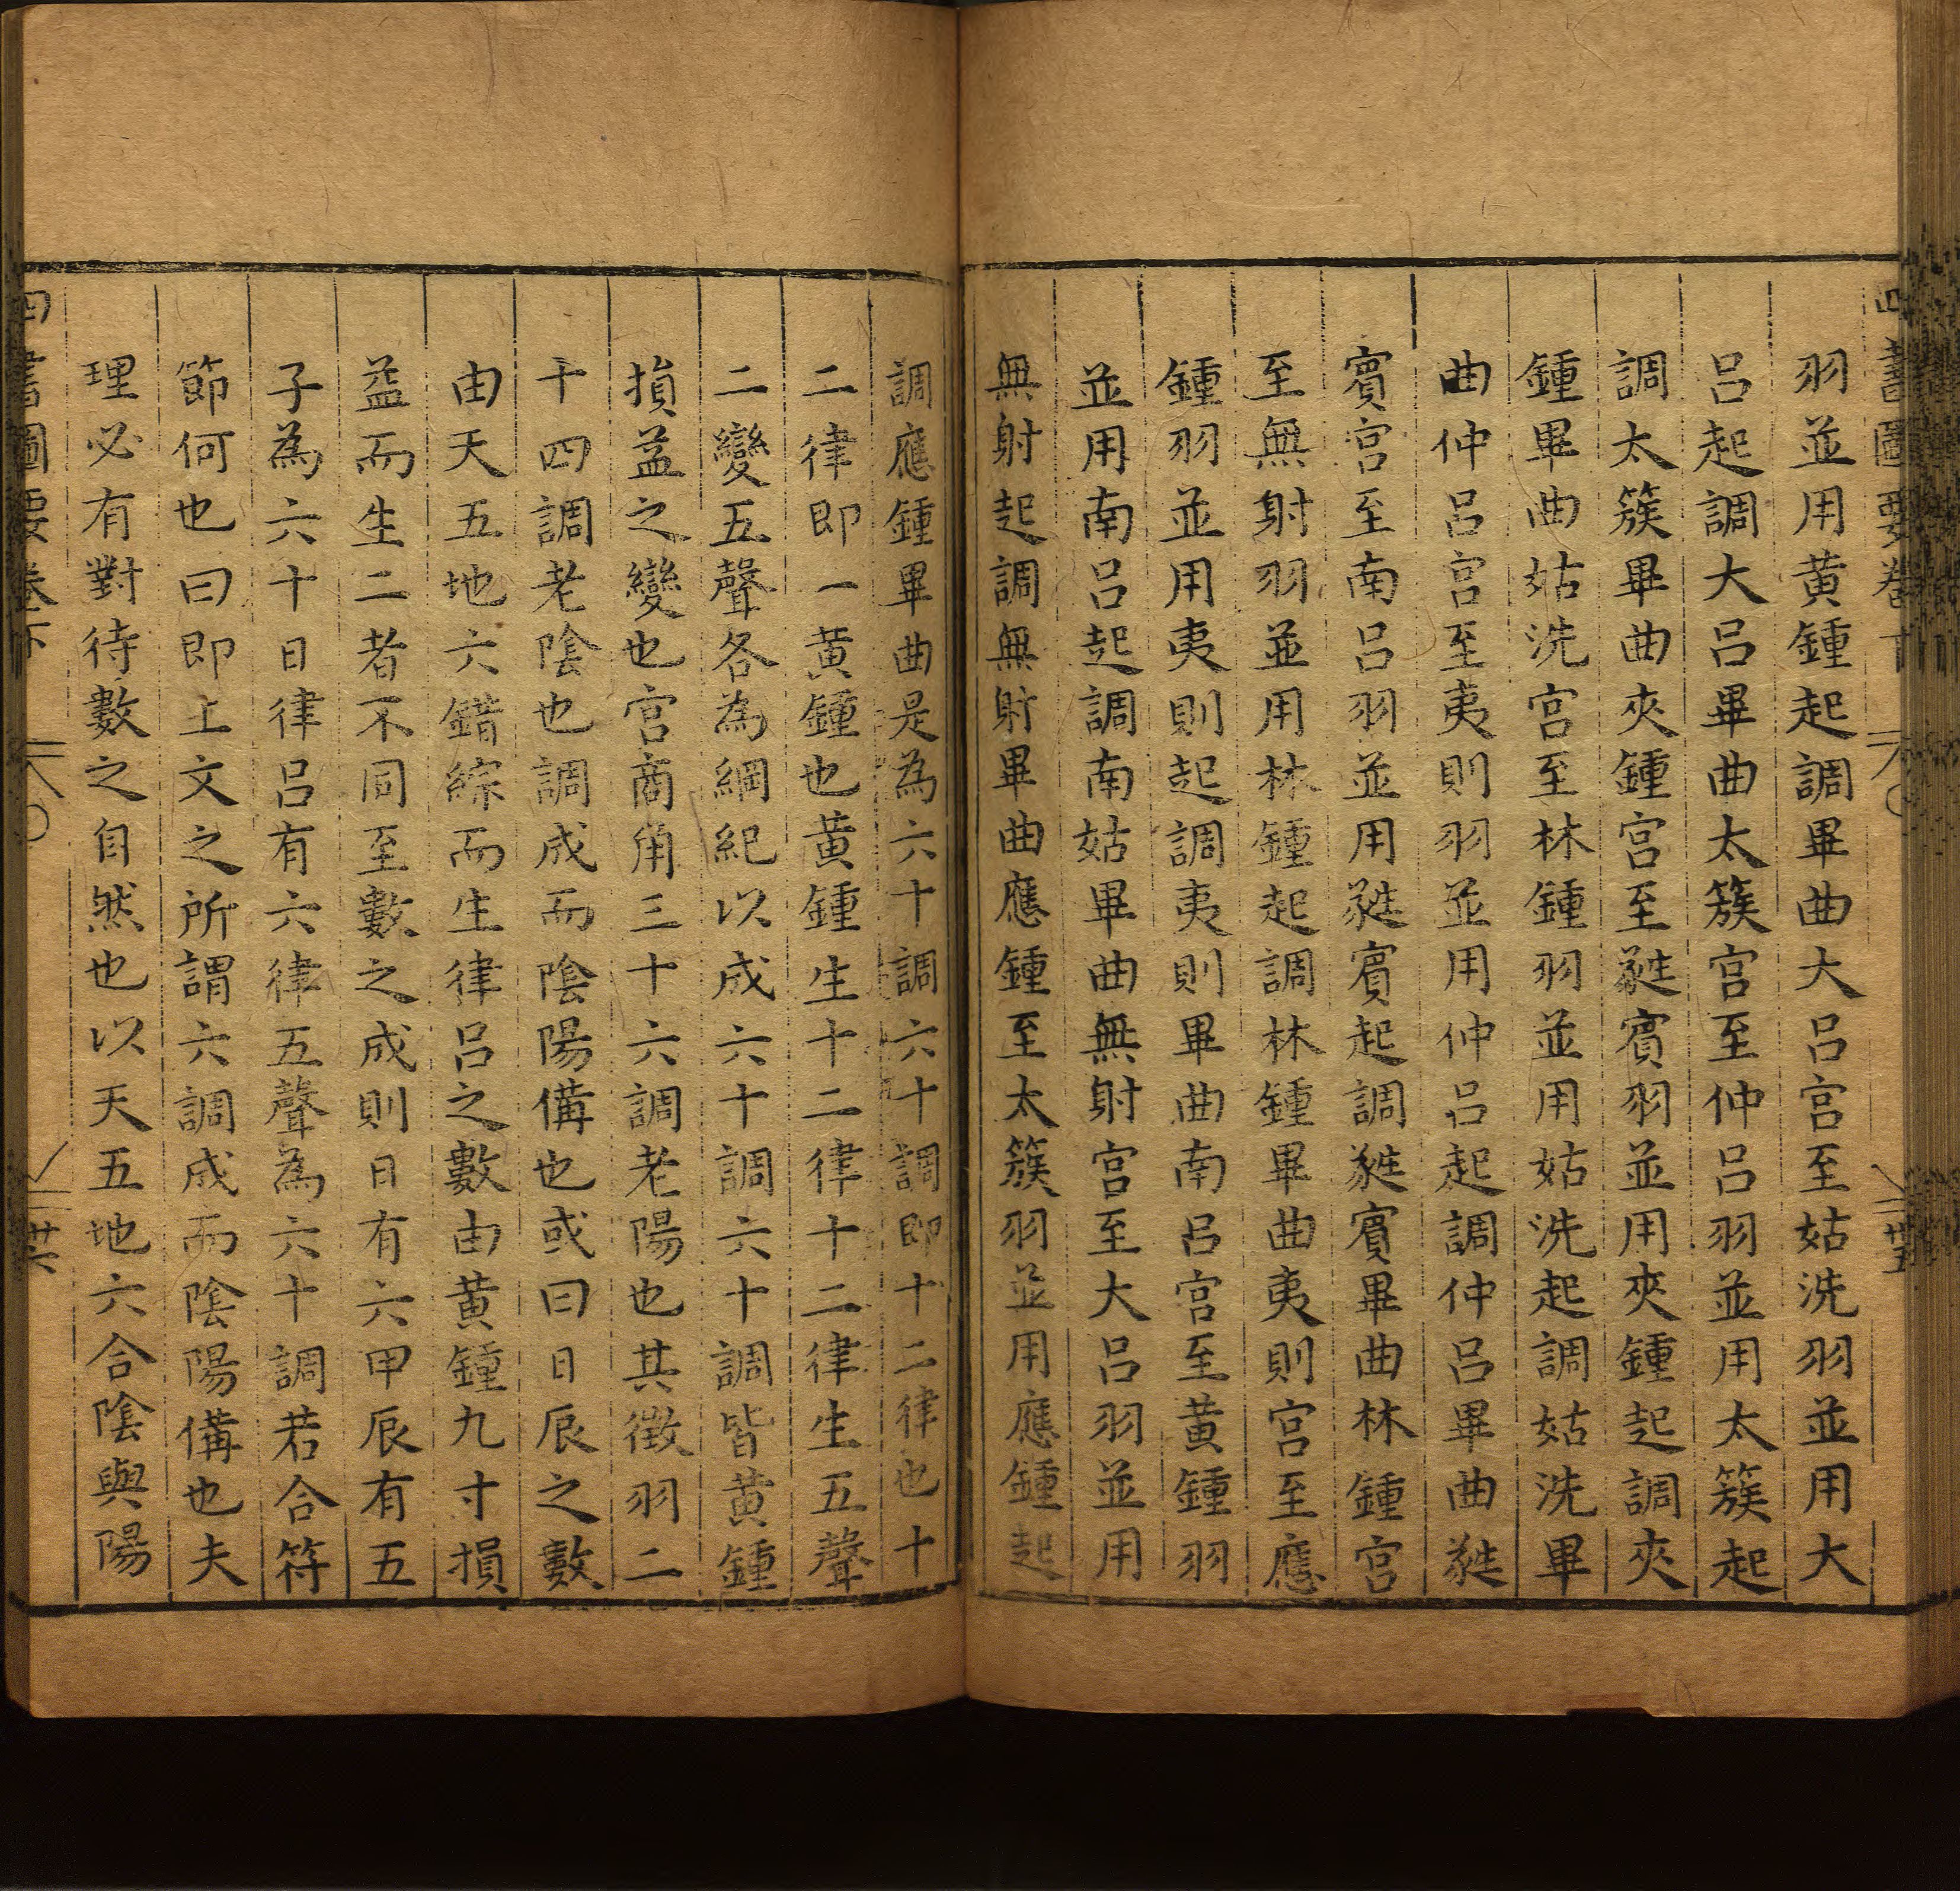 四書圖要卷下
廿五
羽並用黃鍾起調畢曲大呂宮至姑洗羽並用大
呂起調大呂畢曲太簇宮至仲呂羽並用太簇起
調太簇畢曲夾鍾宮至蕤賓羽並用夾鍾起調夾
鍾畢曲姑洗宮至林鍾羽並用姑洗起調姑洗畢
曲仲呂宮至夷則羽並用仲呂起調仲呂畢曲蕤
賓宮至南呂羽並用蕤賓起調蕤賓畢曲林鍾宮
至無射羽並用林鍾起調林鍾畢曲夷則宮至應
鍾羽並用夷則起調夷則畢曲南呂宮至黃鍾羽
並用南呂起調南姑畢曲無射宮至大呂羽並用
無射起調無射畢曲應鍾至太簇羽並用應鍾起
調應鍾畢曲是為六十調六十調即十二律也十
二律即一黃鍾也黃鍾生十二律十二律生五聲
二變五聲各為綱紀以成六十調六十調皆黃鍾
損益之變也宮商角三十六調老陽也其徵羽二
十四調老陰也調成而陰陽備也或曰日辰之數
由天五地六錯綜而生律呂之數由黃鍾九寸損
益而生二者不同至數之成則日有六甲辰有五
子為六十日律呂有六律五聲為六十調若合符
節何也曰即上文之所謂六調成而陰陽備也夫
理必有對待數之自然也以天五地六合陰與陽
四書圖要卷下
廿六